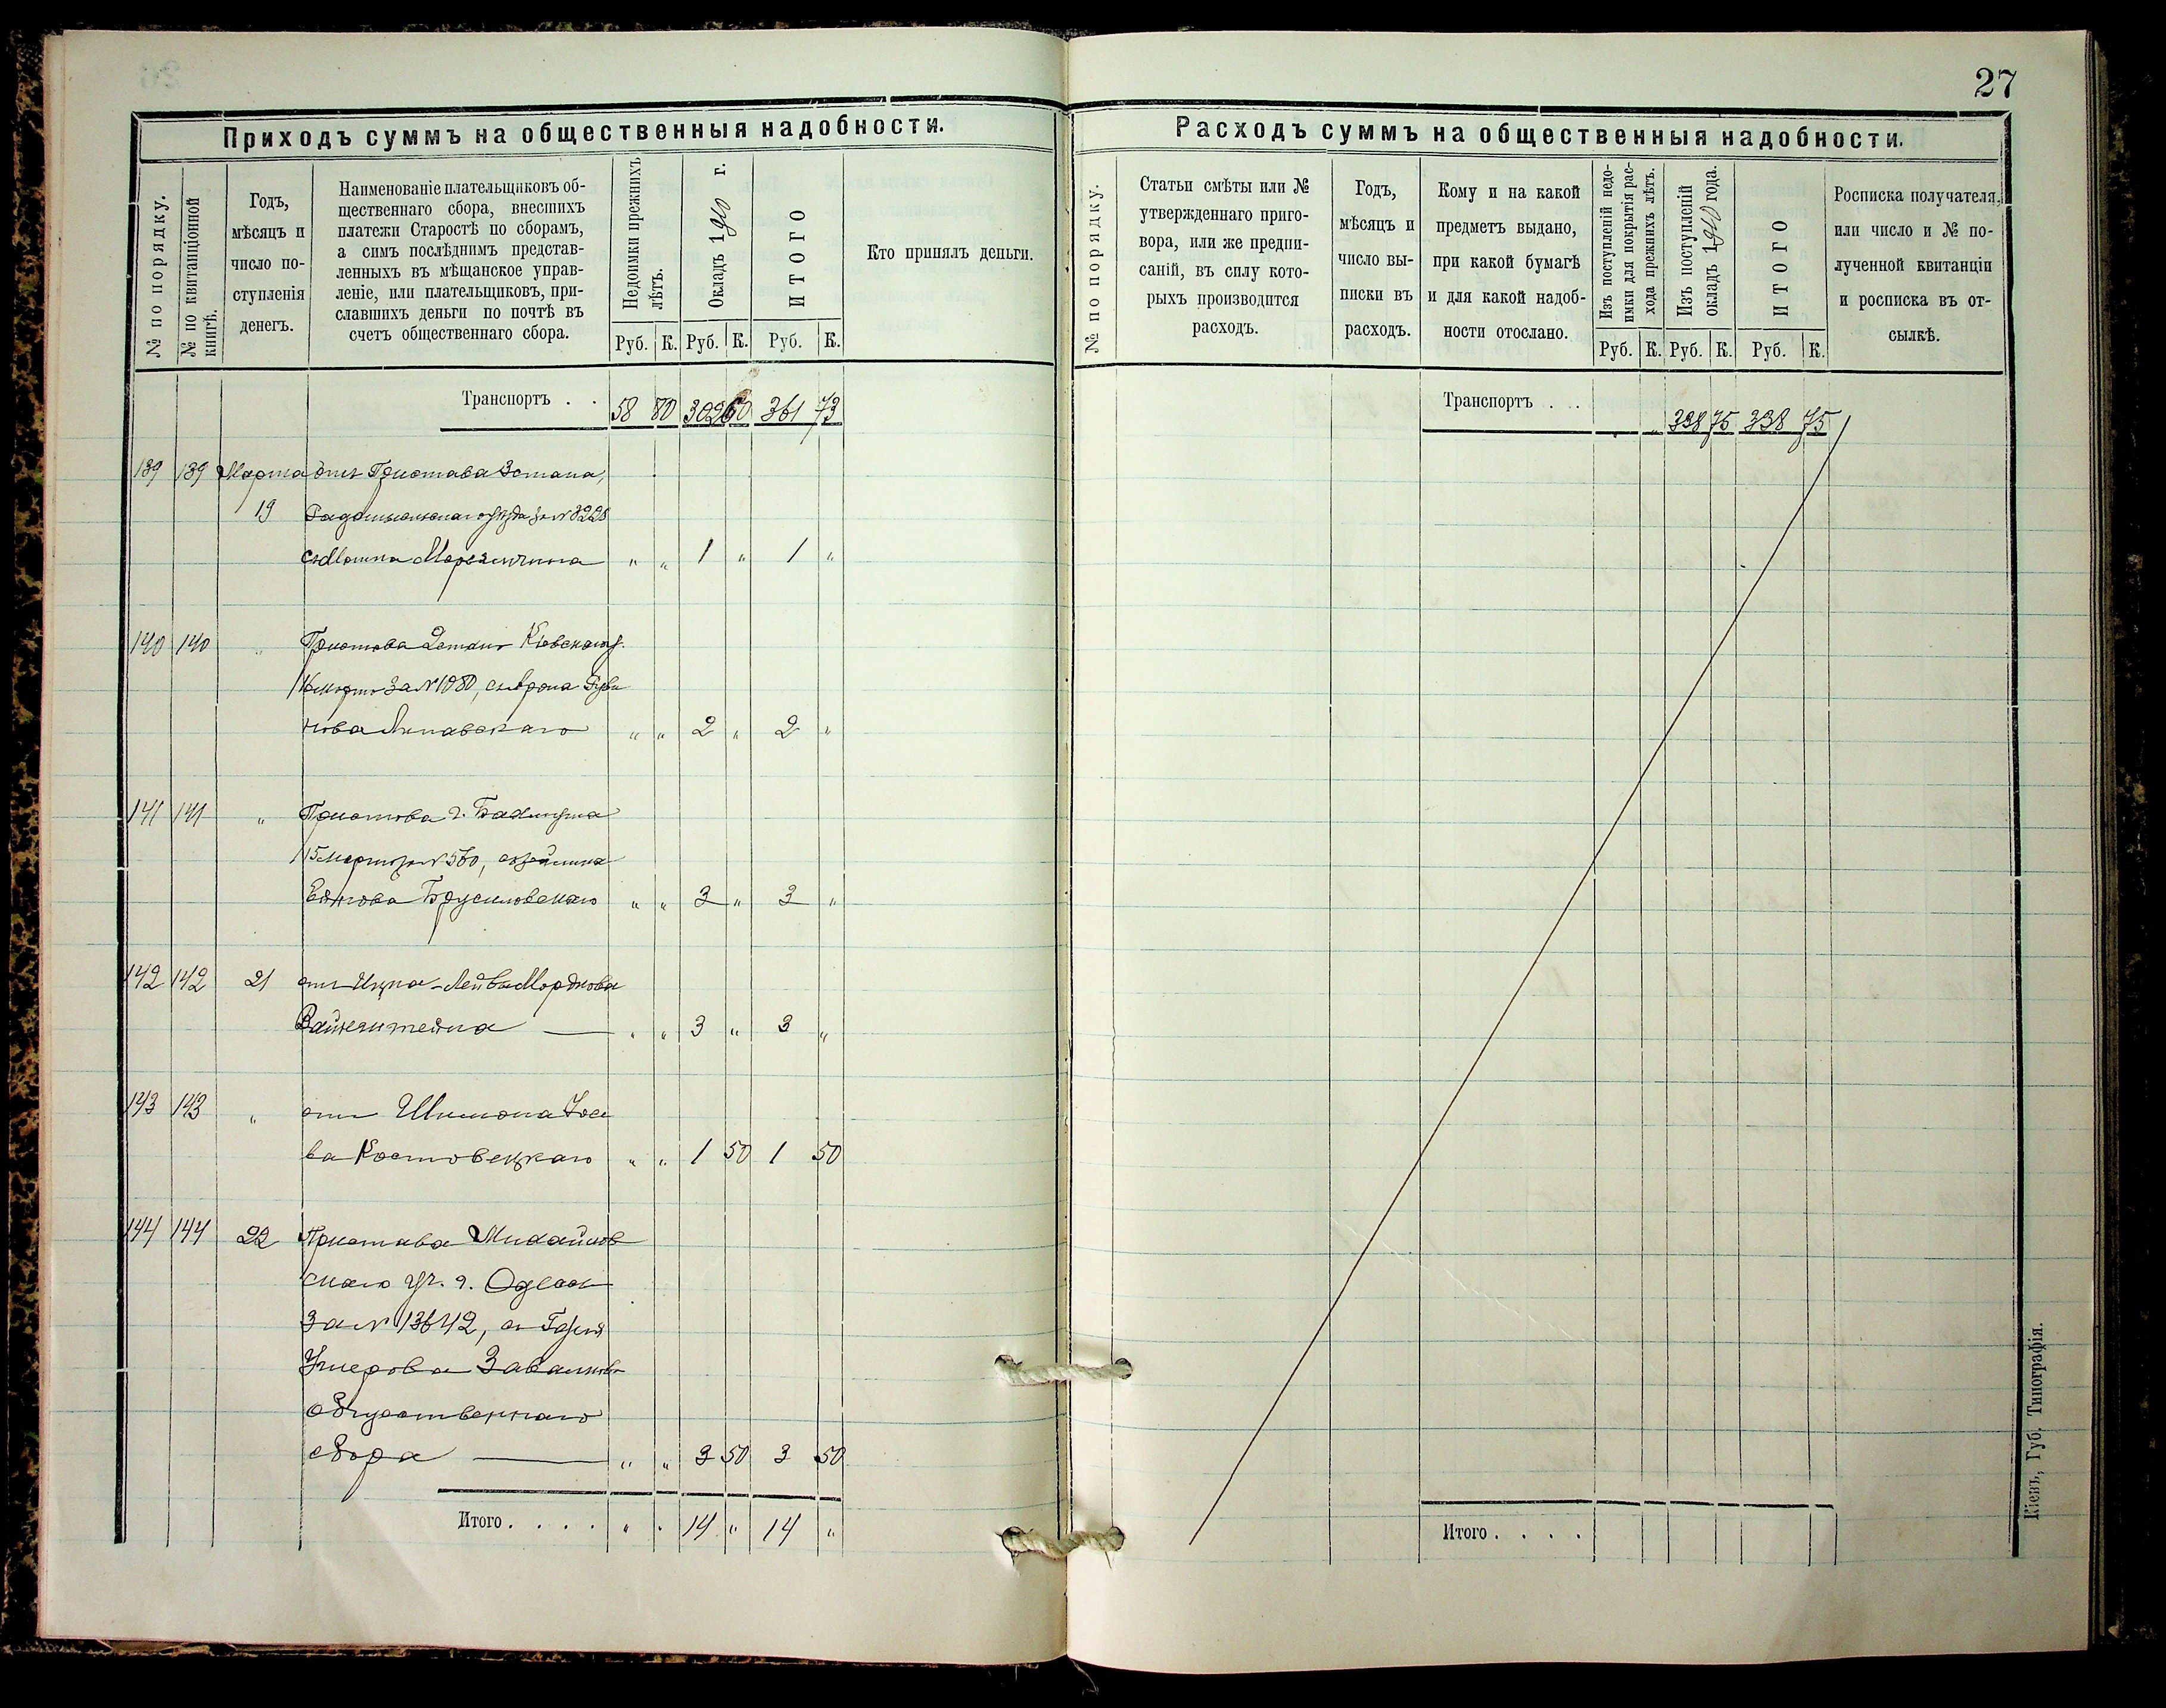 27
Приходъ суммъ на общественныя надобности.
№ по порядку.
№ по квитанціонной книгѣ.
Годъ,
мѣсяцъ и
число по-
ступленія
денегъ.
Наименованіе плательщиковъ об-
щественнаго сбора, внесшихъ
платежи Старостѣ по сборамъ,
а симъ послѣднимъ представ-
ленныхъ въ мѣщанское управ-
леніе, или плательщиковъ, при-
славшихъ деньги по почтѣ въ
счетъ общественнаго сбора.
Недоимки прежнихъ
лѣтъ.
Окладъ 1910 г.
ИТОГО
Кто принялъ деньги.
Руб. К. Руб. К. Руб. К.
Транспортъ . . 58 80 302 361 73
139 139 Марта отъ Пристава 3 стана,
19 уѣзда за № 3228
" " 1 " 1 "
140 140 " Пристава 2 стана Кіевскаго у.
за № 1080,
" " 2 " 2 "
141 141 " Пристава г.
15 марта за № 560,
Брусиловскаго " " 3 " 3 "
142 142 21 отъ Ицка-Лейбы Мордкова
Вайнштейна — " " 3 " 3 "
143 143 " отъ Шимона
ва Костовецкаго " " 1 50 1 50
144 144 22 Пристава Михайлов
скаго уч. г. Одессы
за № 13642, съ
Умерова
общественнаго
сбора — " " 3 50 3 50
Итого . . . . " " 14 " 14 "
Расходъ суммъ на общественныя надобности.
№ по порядку.
Статьи смѣты или №
утвержденнаго приго-
вора, или же предпи-
саній, въ силу кото-
рыхъ производится
расходъ.
Годъ,
мѣсяцъ и
число вы-
писки въ
расходъ.
Кому и на какой
предметъ выдано,
при какой бумагѣ
и для какой надоб-
ности отослано.
Изъ поступленій недо-
имки для покрытія рас-
хода прежнихъ лѣтъ.
Изъ поступленій
окладъ 1910 года.
ИТОГО
Росписка получателя,
или число и № по-
лученной квитанціи
и росписка въ от-
сылкѣ.
Руб. К. Руб. К. Руб. К.
Транспортъ . . " 338 75 338 75
Итого . . . .
Кіевъ, Губ. Типографія.